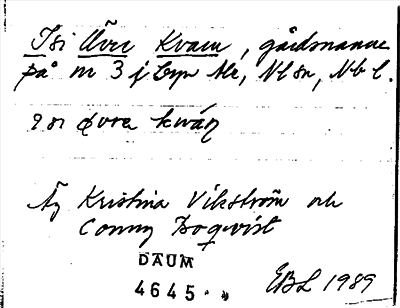 Isi Övre Kvarn, gårdsnamn
på nr 3 i byn Ale, Nl sn, Nb l.
övre kwáṇ
Äg Kristina Vikström och
Conny Boqvist
DAUM
4645
EBL 1989